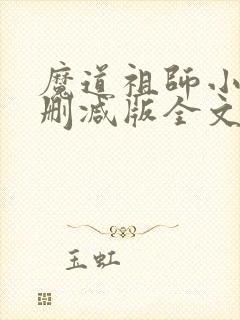 魔道祖师小
删减版全文
玉虹